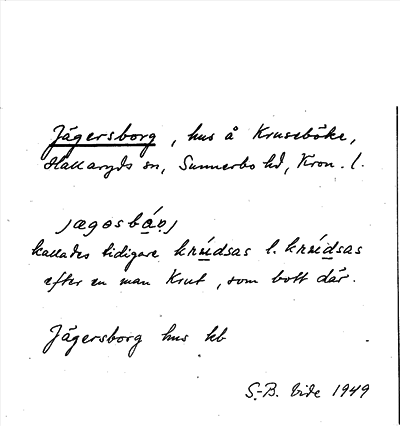 Jägersborg, hus å Kruseböke,
Hallaryds sn, Sunnerbo hd, Kron. l.
kallades tidigare
efter en man Krut, som bott där.
Jägersborg hus kb
S.-B. Vide 1949